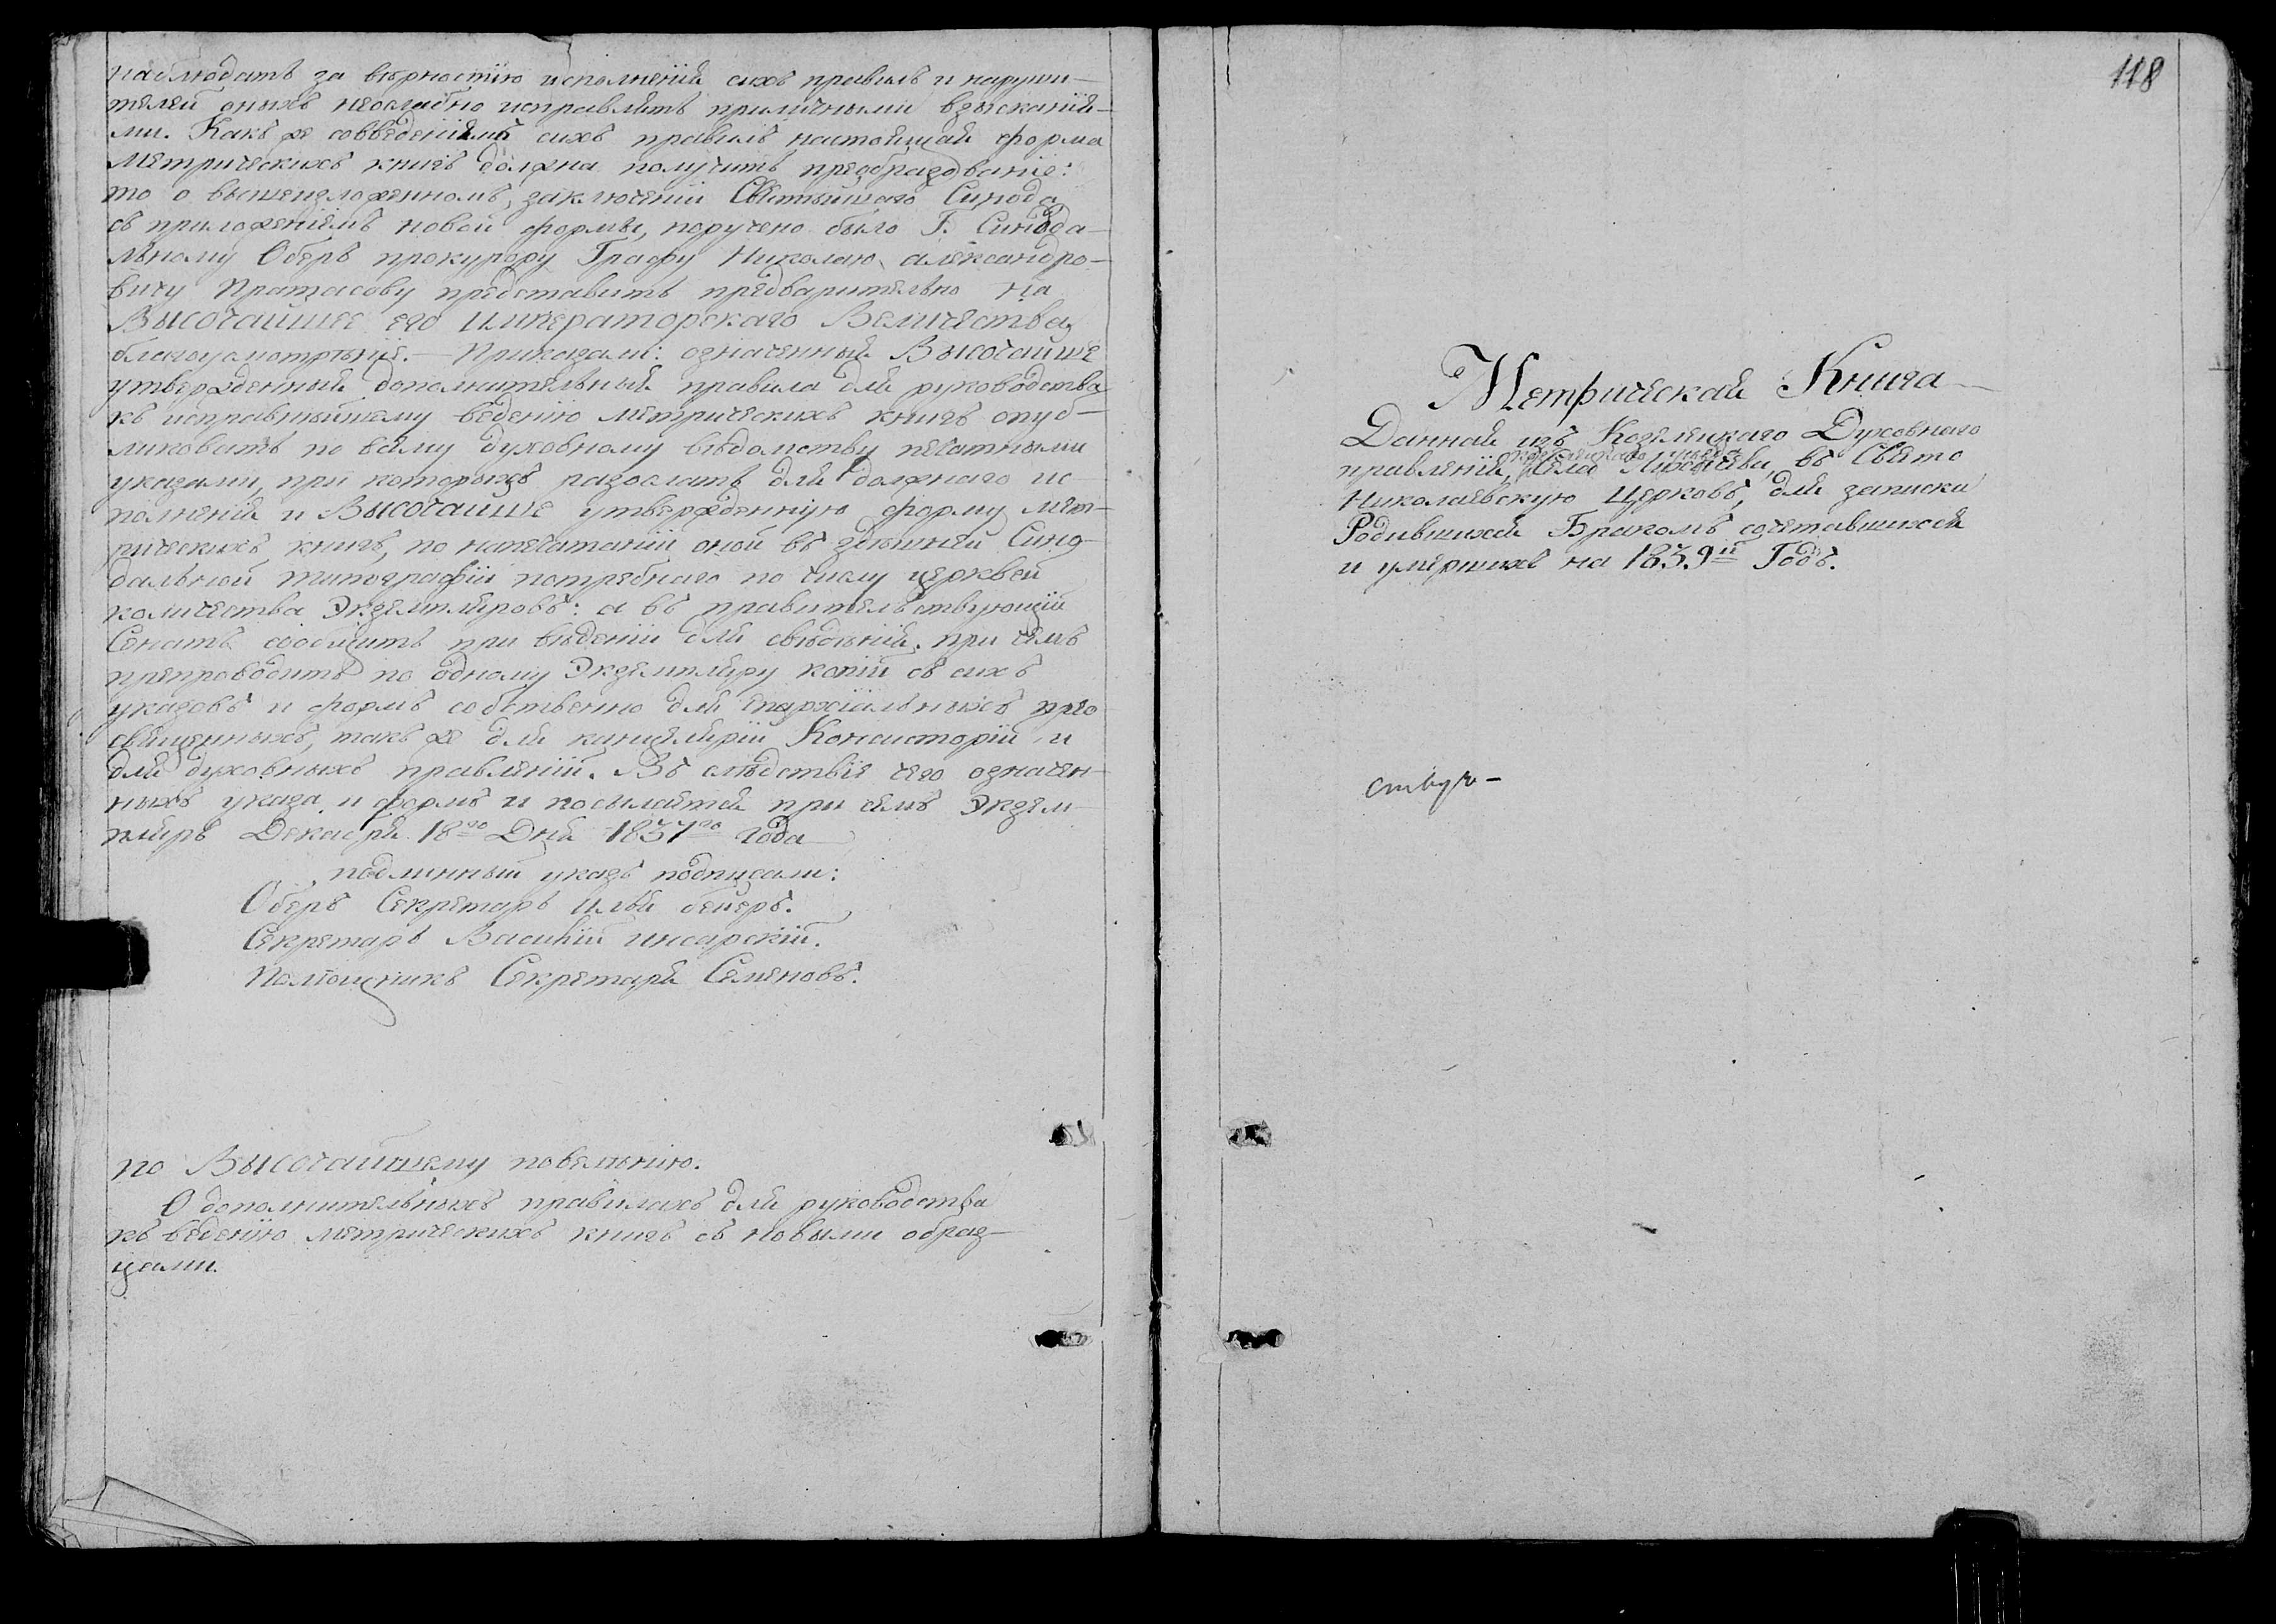 наблюдать за вѣрностію исполненія сихъ правилъ и наруши-
телей оныхъ неослабно исправлять приличными взысканія-
ми. Какъ же совведеніемъ сихъ правилъ настоящая форма
Метрическихъ книгъ должна получить преобразованіе:
то о вышеизложенномъ, заключеніи Святѣйшаго Синода,
съ приложеніемъ новой формы, поручено было Г. Синода-
льному Оберъ прокурору Графу Николаю, александро-
вичу Пратасову представить предварительно на
Высочайшее его императорскаго Величества,
благоусмотрѣніе. — Приказали: означенныя Высочайше
утвержденныя дополнительныя правила для руководства
къ исправнѣйшему ведению метрическихъ книгъ опуб-
ликовать по всему духовному вѣдомству печатными
указами, при которыхъ разослать для должнаго ис-
полненія и Высочайше утвержденную форму мет-
рическихъ книгъ, по напечатаніи оной въ здѣшней Сино-
дальной типографіи потребнаго по числу церквей
количества Экземпляровъ: а въ правительствующій
Сенатъ сообщить при вѣденіи для свѣденія. при чемъ
препроводить по одному Экземпляру копій съ сихъ
указовъ и формъ собственно для епархіальныхъ прео
священныхъ, такъ же для канцеляріи Консисторіи и
для духовныхъ правленій. Въ слѣдствіе чего означен-
ныхъ указа и формъ и посылается при семъ Экзем-
пляръ Декабря 18го Дня 1837го года
подлинный указъ подписали:
Оберъ Секретарь Илья бейеръ.
Секретарь Василій инсарскій.
Помощникъ Секретаря Семеновъ.
по Высочайшему повелѣнію.
О дополнительныхъ правилахъ для руководства
къ веденію метрическихъ книгъ съ новыми образ-
цами.
118
Метрическая Книга
Данная изъ Козелецкаго Духовнаго
козелецкаго уѣзда
правленія, села въ Свято
Николаевскую Церковь, для записки
Родившихся Бракомъ сочетавшихся
и умершихъ на 1839й Годъ.